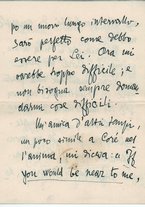 poi un nuovo lungo intervallo,
Sarò perfetto come debbo
essere per Lei. Ora mi
sarebbe troppo difficile; e
non bisogna sempre
cose difficili.
Un'amica d'altri tempi,
un poco simile a nel
l'anima, mi diceva
you would be near to me,